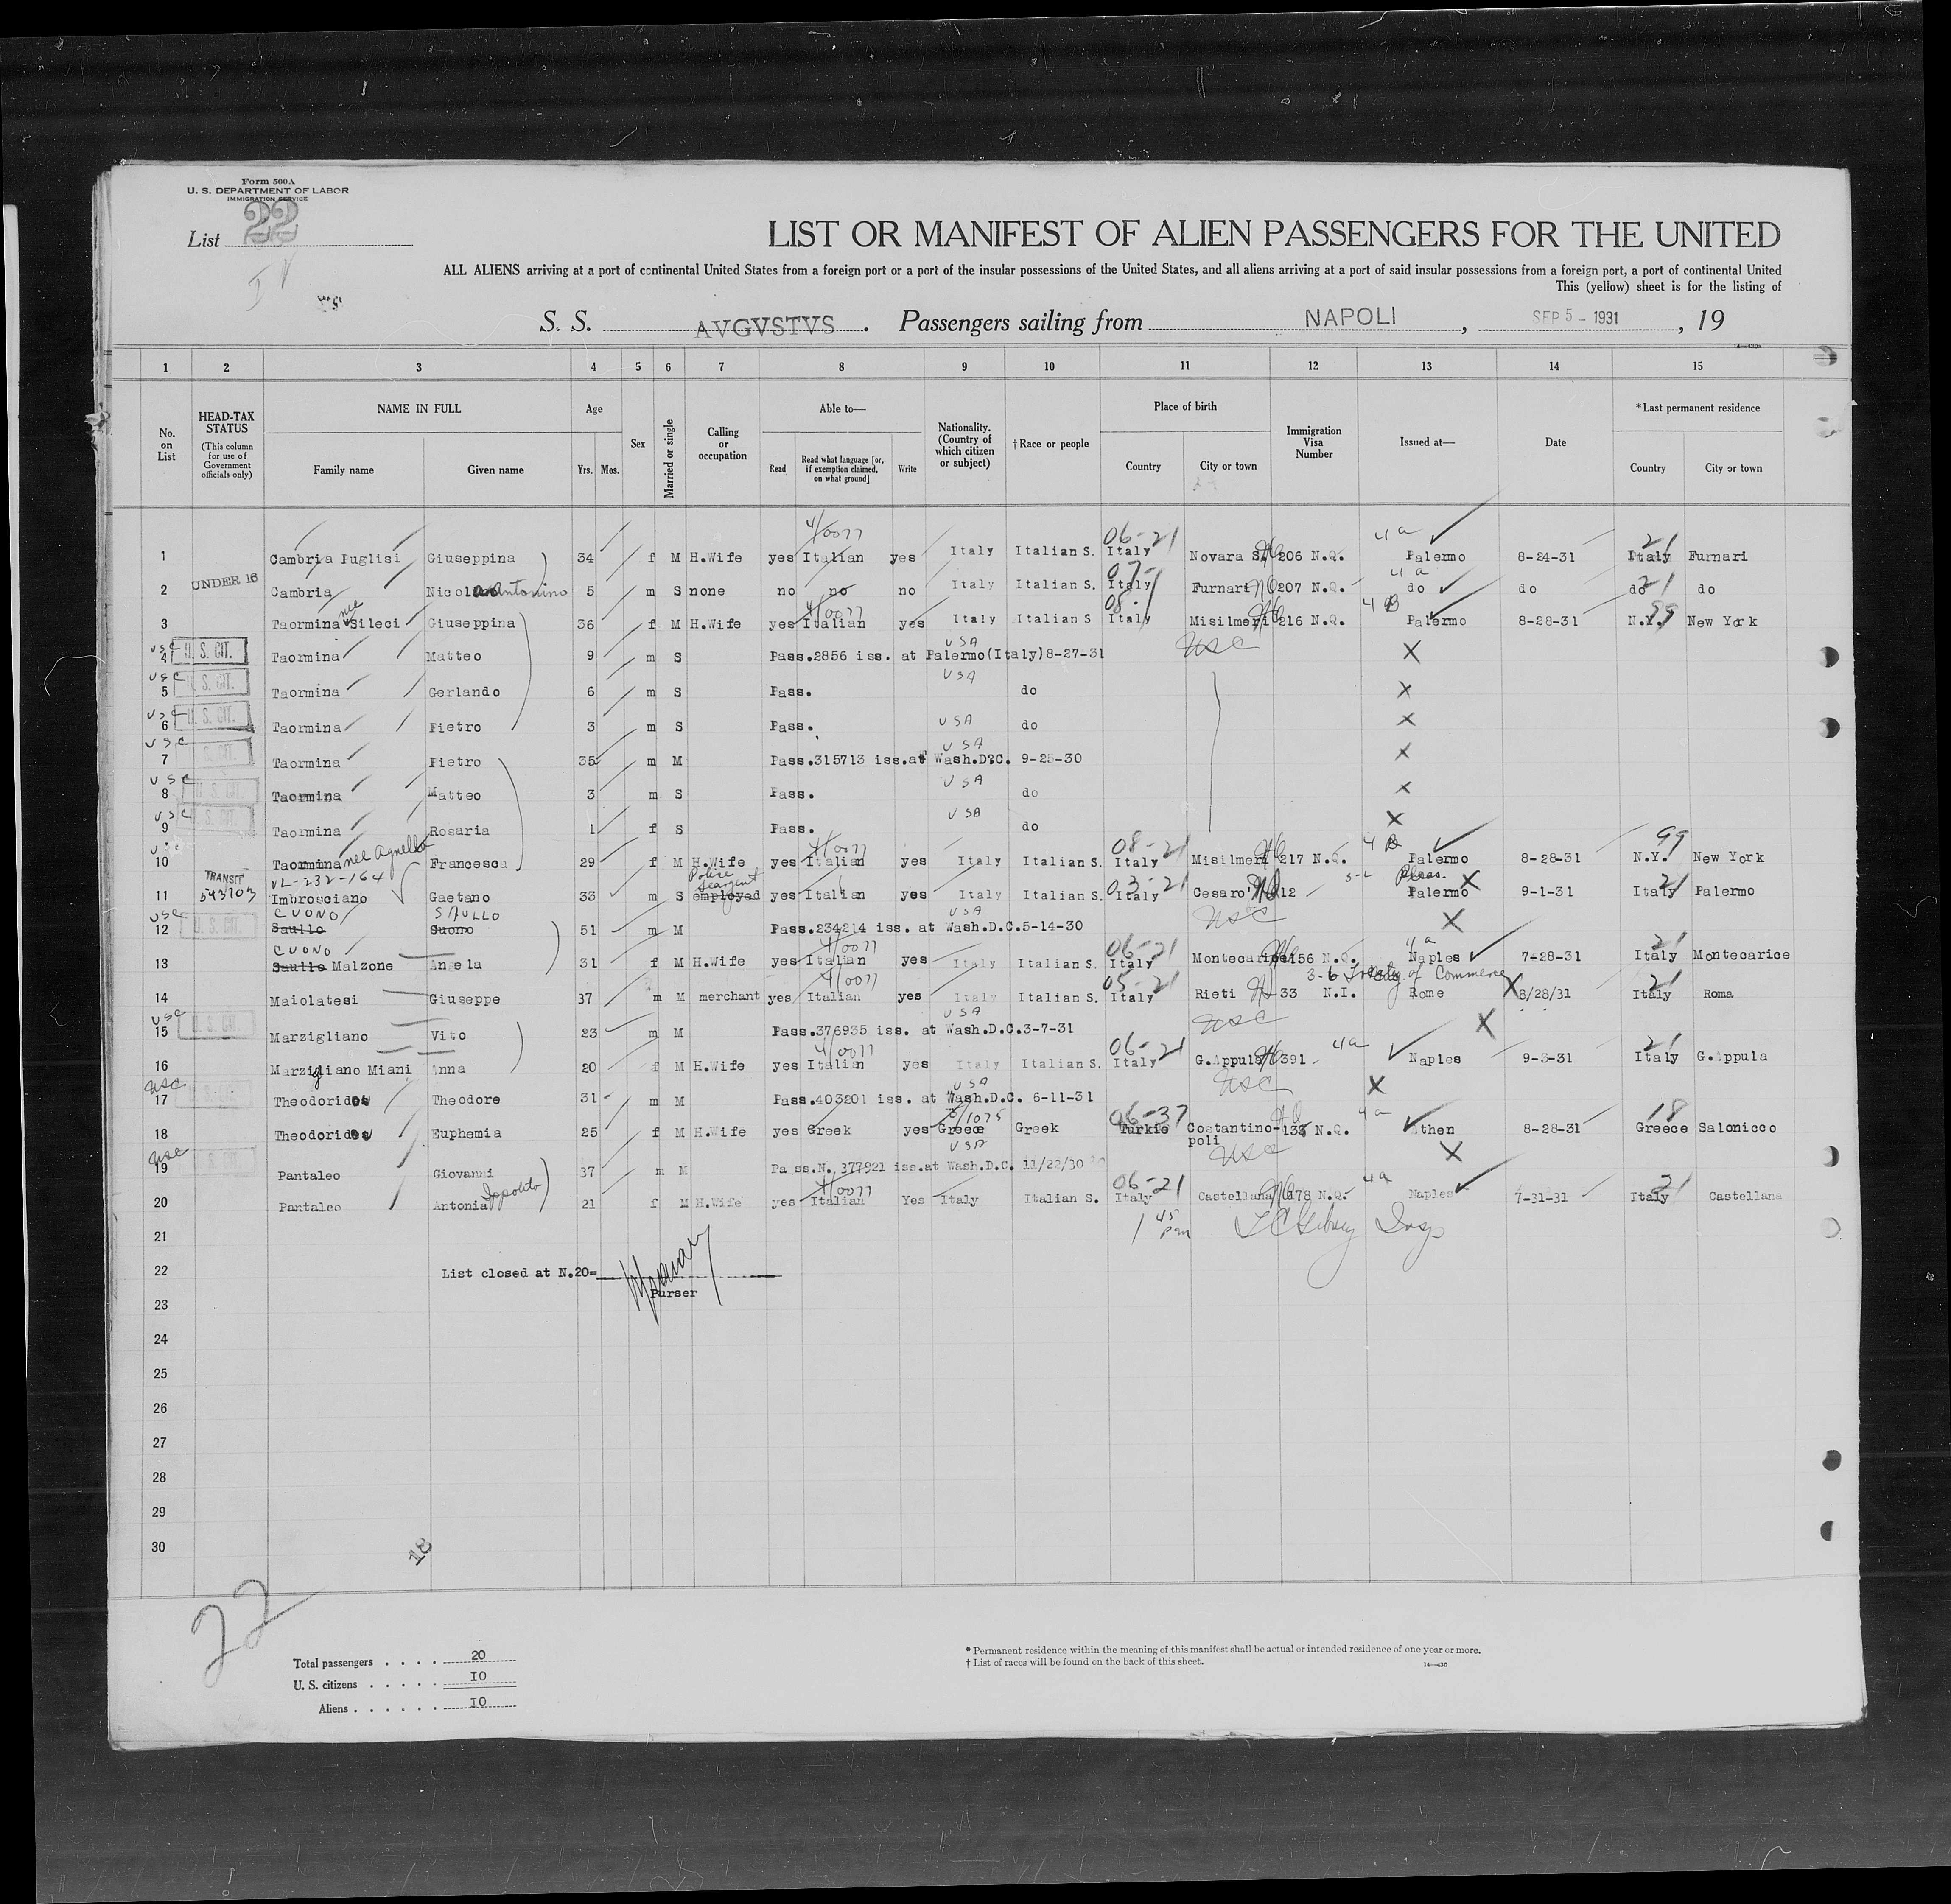 Form 500A
U. S. DEPARTMENT OF LABOR
IMMIGRATION SERVICE
List 22
LIST OR MANIFEST OF ALIEN PASSENGERS FOR THE UNITED
ALL ALIENS arriving at a port of continental United States from a foreign port or a port of the insular possessions of the United States, and all aliens arriving at a port of said insular possessions from a foreign port, a port of continental United
This (yellow) sheet is for the listing of
S. S. AVGVSTVS. Passengers sailing from NAPOLI, SEP 5 - 1931, 19
1 2 3 4 5 6 7 8 9 10 11 12 13 14 15
No. on List
HEAD-TAX STATUS (This column for use of Government officials only)
NAME IN FULL
Family name Given name
Age
Yrs. Mos.
Sex
Married or single
Calling or occupation
Able to—
Read Read what language [or, if exemption claimed, on what ground] Write
Nationality. (Country of which citizen or subject)
†Race or people
Place of birth
Country City or town
Immigration Visa Number
Issued at—
Date
*Last permanent residence
Country City or town
4/0077 06-21 4a 21
1 Cambria Puglisi Giuseppina 34 f M H.Wife yes Italian yes Italy Italian S. Italy Novara S. 206 N.Q. Palermo 8-24-31 Italy Furnari
UNDER 16 4a 21
2 Cambria Nicola Antonino 5 m S none no no no Italy Italian S. Italy Furnari 207 N.Q. do do do do
nee 4/0077 4B 99
3 Taormina Sileci Giuseppina 36 f M H.Wife yes Italian yes Italy Italian S Italy Misilmeri 216 N.Q. Palermo 8-28-31 N.Y. New York
USC U. S. CIT. USA USC
4 Taormina Matteo 9 m S Pass.2856 iss. at Palermo(Italy)8-27-31 X
USC U. S. CIT. USA
5 Taormina Gerlando 6 m S Pass. do X
USC U. S. CIT. USA
6 Taormina Pietro 3 m S Pass. do X
USC S. CIT. USA
7 Taormina Pietro 35 m M Pass.315713 iss.at Wash.D.C. 9-25-30 X
USC U. S. CIT. USA
8 Taormina Matteo 3 m S Pass. do X
USC U. S. CIT. USA
9 Taormina Rosaria 1 f S Pass. do X
4/0077 08-21 4B 99
10 Taormina nee Agnello Francesca 29 f M H.Wife yes Italian yes Italy Italian S. Italy Misilmeri 217 N.Q. Palermo 8-28-31 N.Y. New York
TRANSIT VL-232-164 Police Seargent 03-21 3-2 Pleas. 21
11 Imbrosciano Gaetano 33 m S employed yes Italian yes Italy Italian S. Italy Cesaro' 12 Palermo X 9-1-31 Italy Palermo
USC U. S. CIT. CUONO SAULLO USA USC
12 Saullo Cuono 51 m M Pass.234214 iss. at Wash.D.C.5-14-30 X
CUONO 4/0077 06-21 4a 21
13 Saullo Malzone Angela 31 f M H.Wife yes Italian yes Italy Italian S. Italy Montecarice 156 N.Q. Naples 7-28-31 Italy Montecarice
4/0077 05-21 3-6 Treaty of Commerce 21
14 Maiolatesi Giuseppe 37 m M merchant yes Italian yes Italy Italian S. Italy Rieti 33 N.I. Rome X 8/28/31 Italy Roma
USC U. S. CIT. USA USC
15 Marzigliano Vito 23 m M Pass.376935 iss. at Wash.D.C.3-7-31 X
4/0077 06-21 4a 21
16 Marzigliano Miani Anna 20 f M H.Wife yes Italian yes Italy Italian S. Italy G.Appula 391 Naples 9-3-31 Italy G.Appula
USC U. S. CIT. USA USC
17 Theodoridou Theodore 31 m M Pass.403201 iss. at Wash.D.C. 6-11-31 X
06-37 4a 18
18 Theodoridou Euphemia 25 f M H.Wife yes Greek yes Greece Greek Turkie Costantinopoli 133 N.Q. Athen 8-28-31 Greece Salonicco
USC S. CIT. USA USC
19 Pantaleo Giovanni 37 m M Pass.N. 377921 iss.at Wash.D.C. 11/22/30 X
4/0077 06-21 4a 21
20 Pantaleo Antonia Ippolito 21 f M H.Wife yes Italian Yes Italy Italian S. Italy Castellana 178 N.Q. Naples 7-31-31 Italy Castellana
21 1 45 Pm Insp
22 List closed at N.20=
Purser
23
24
25
26
27
28
29
30
18
22
Total passengers . . . . 20
U. S. citizens . . . . . 10
Aliens . . . . . . 10
* Permanent residence within the meaning of this manifest shall be actual or intended residence of one year or more.
† List of races will be found on the back of this sheet.
14—430